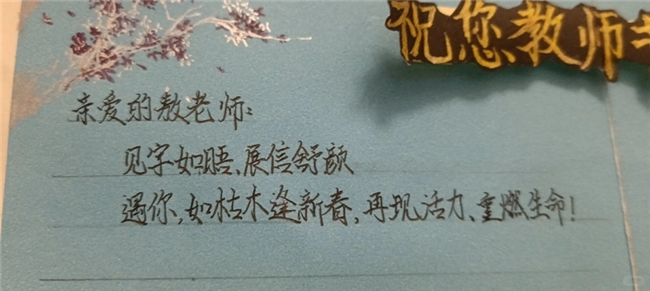 祝您教师
亲爱的敖老师:
见字如晤,展信舒颜
遇你,如枯木逢新春,再现活力、重燃生命!